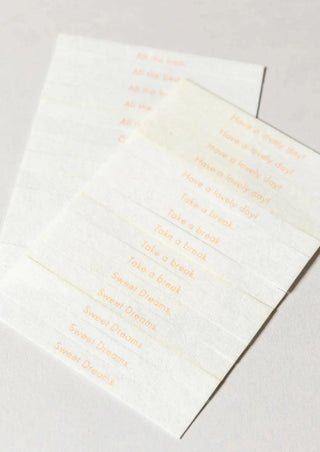 All the best.
All the best
All the
All the
Have a lovely day!
Have a lovely day!
Have a lovely day!
Have a lovely day!
Have a lovely day!
Take a break.
Take a break.
Take a break.
Take a break.
Take a break.
Sweet Dreams.
Sweet Dreams.
Sweet Dreams.
Sweet Dreams.
Sweet Dreams.